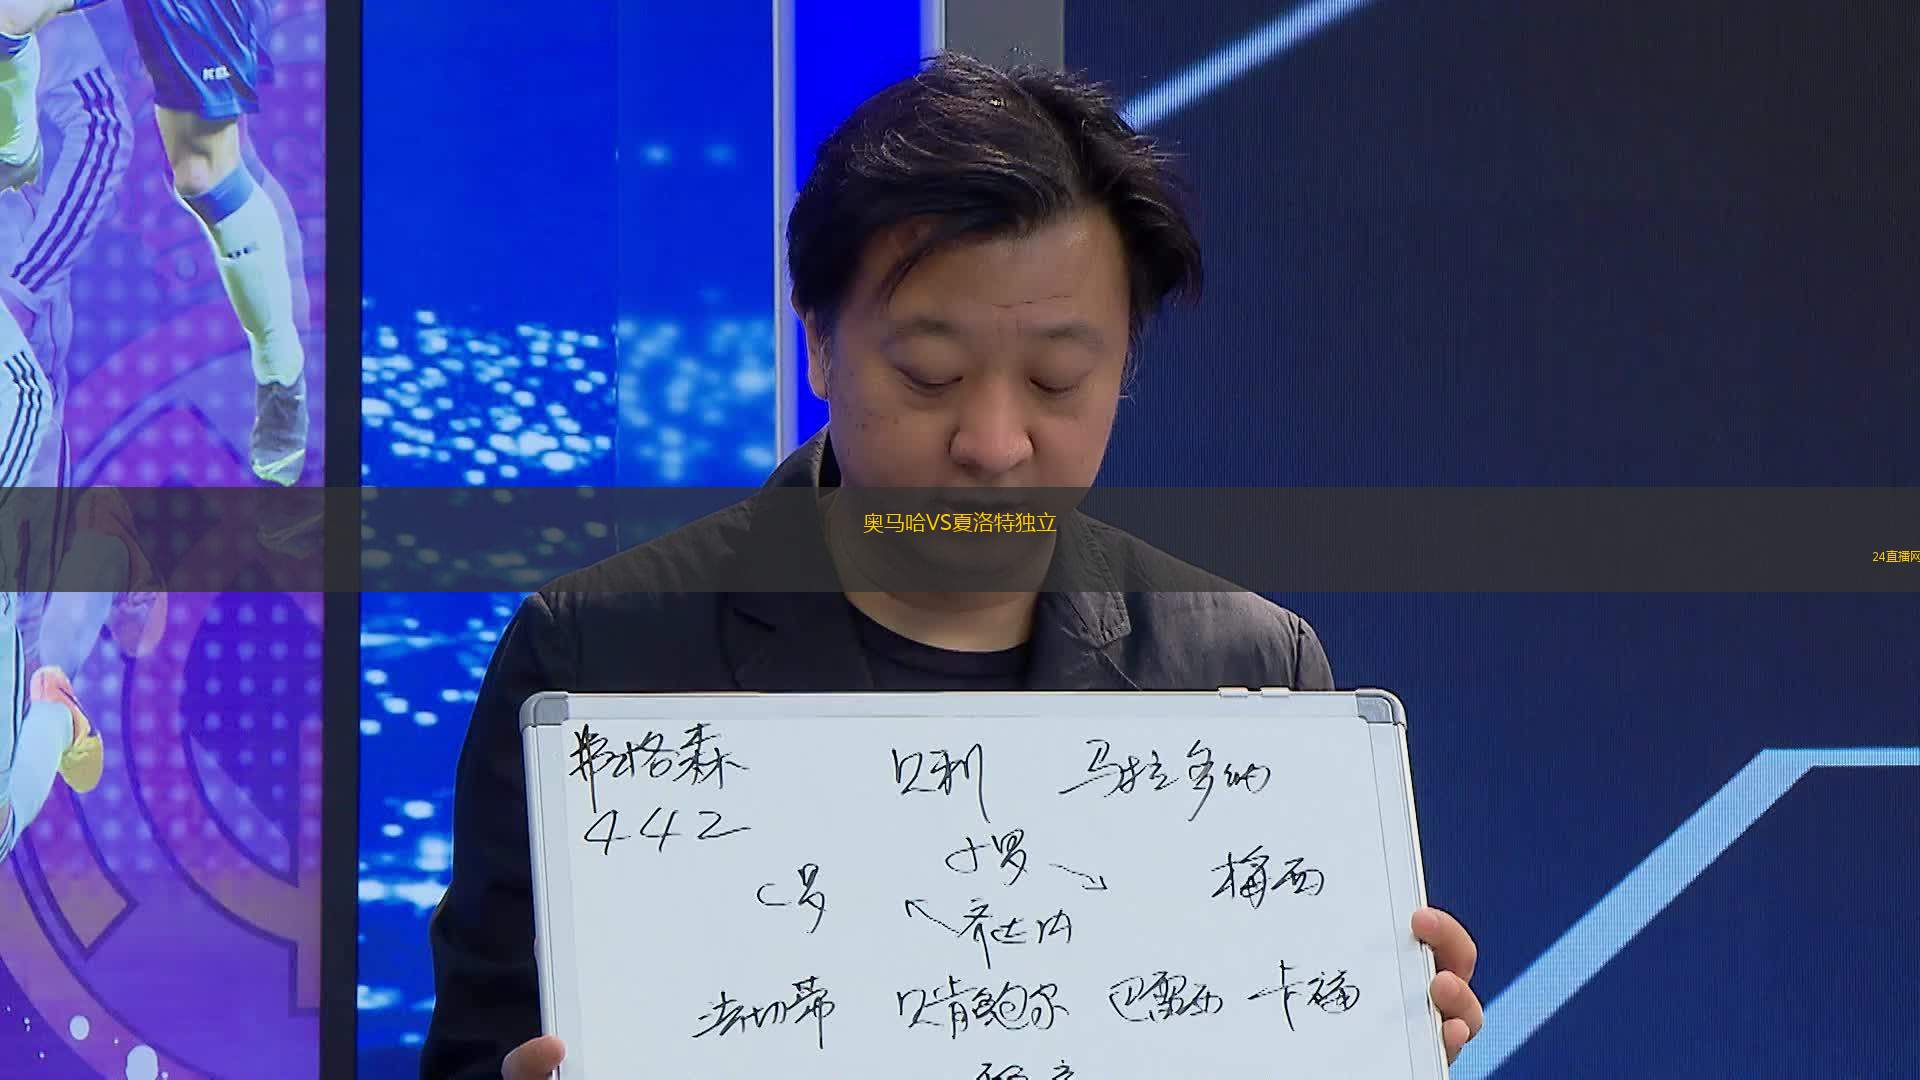 奥马哈VS夏洛特独立
24直播网
弗格森 贝利 马拉多纳
442
小罗
C罗 梅西
齐达内
法切蒂 贝肯鲍尔 巴雷西 卡福